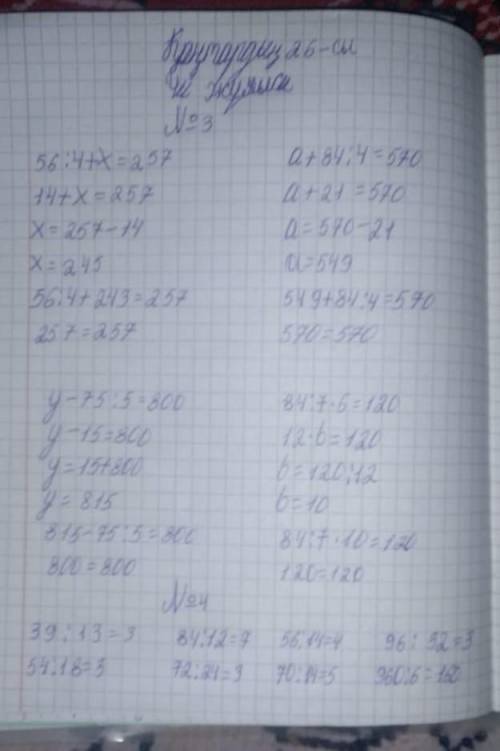 26-сы
№3
56:4+x=257 a+84:4=570
14+x=257 a+21=570
x=257-14 a=570-21
x=243 a=549
56:4+243=257 549+84:4=570
257=257 570=570
y-75:5=800 84:7·b=120
y-15=800 12·b=120
y=15+800 b=120:12
y=815 b=10
815-75:5=800 84:7·10=120
800=800 120=120
№4
39:13=3 84:12=7 56:14=4 96:32=3
54:18=3 72:24=3 70:14=5 960:6=160